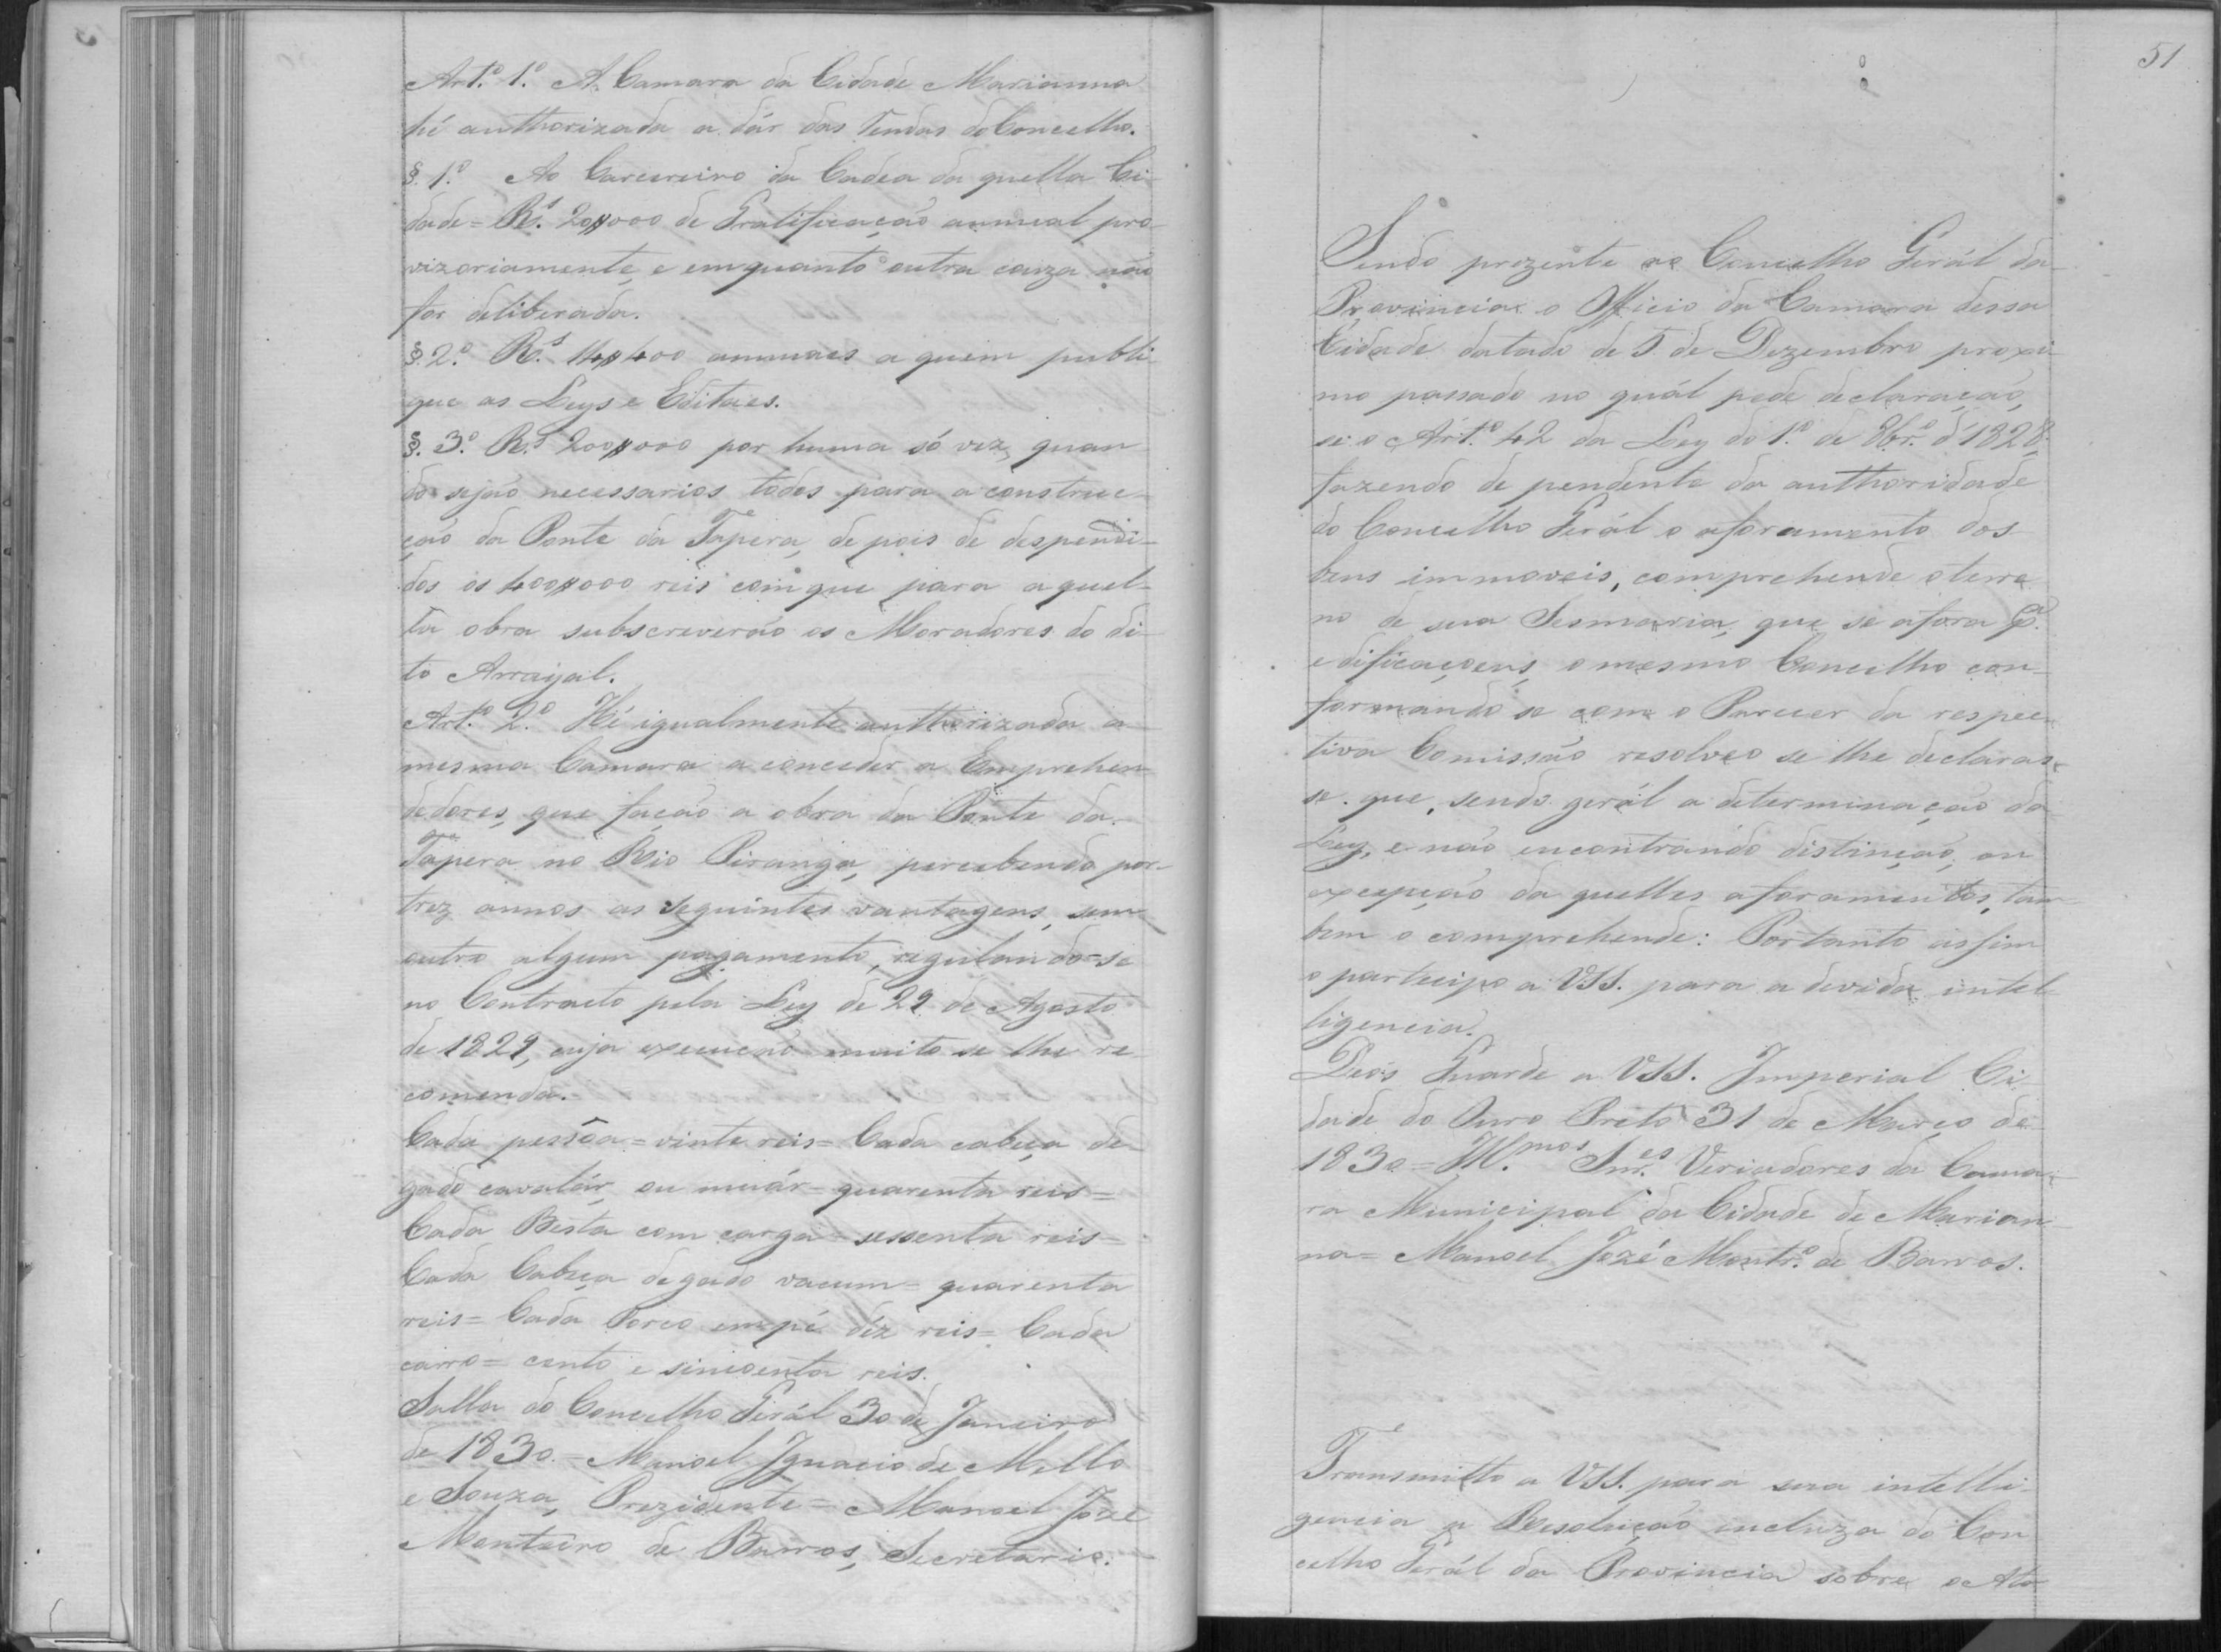 Art.º 1.º A Camara da Cidade Marianna
hé authorizada a dár das rendas do Concelho.
§. 1.º Ao Carcereiro da Cadea da quella Ci-
dade = R.s 20$000 de Gratificação annual pro-
vizoriamente, e emquanto outra couza não
for deliberada.
§. 2.º R.s 14$400 annuaes a quem publi-
que as Leys e Editaes.
§. 3.º R.s 200$000 por huma só vez, quan-
do sejão necessarios todos para a construc-
ção da Ponte da Tapera, de pois de despendi-
dos os 400$000 reis com que para aquel-
la obra subscreverão os Moradores do di-
to Arrayal.
Art.º 2.º Hé igualmente authorizada a
mesma Camara a conceder a Emprehen-
dedores, que fação a obra da Ponte da
Tapera no Rio Piranga, percebendo por
trez annos as seguintes vantagens, sem
outro algum pagamento, regulando-se
no Contracto pela Ley de 29 de Agosto
de 1829, cuja execução muito se lhe re-
comenda.
Cada pessôa = vinte reis = Cada cabeça de
gado cavalár, ou muár = quarenta reis =
Cada Besta com carga = sessenta reis =
Cada Cabeça de gado vacum = quarenta
reis = Cada Porco em pé déz reis = Cada
carro = cento e sincoenta reis.
Salla do Concelho Gerál 30 de Janeiro
de 1830. = Manoel Ignacio de Mello
e Souza, Prezidente = Manoel Jozé
Monteiro de Barros, Secretario.
51
Sendo prezente ao Concelho Gerál da
Provincia o Officio da Camara dessa
Cidade datado de 5 de Dezembro proxi-
mo passado no quál pede declaração,
se o Art.º 42 da Ley do 1.º de 8br.º d'1828,
fazendo de pendente da authoridade
do Concelho Gerál o aforamento dos
bens immoveis, comprehende o terre-
no de sua Sesmaria, que se afora p.ª
edificaçoens, o mesmo Concelho con-
formando se com o Parecer da respec-
tiva Comissão resolveo se lhe declaras-
se. que, sendo gerál a determinação da
Ley, e não encontrando distincção, ou
excepção da quelles aforamentos, tam-
bem o comprehende: Portanto assim
o participo a VSS. para a devida intel-
ligencia.
Deos Guarde a VSS. Imperial Ci-
dade do Ouro Preto 31 de Março de
1830 = Ill.mos Snr.es Veriadores da Cama-
ra Municipal da Cidade de Marian-
na = Manoel Jozé Montr.º de Barros.
Transmitto a VSS. para sua intelli-
gencia a Resolução incluza do Con-
celho Gerál da Provincia sobre o Ato